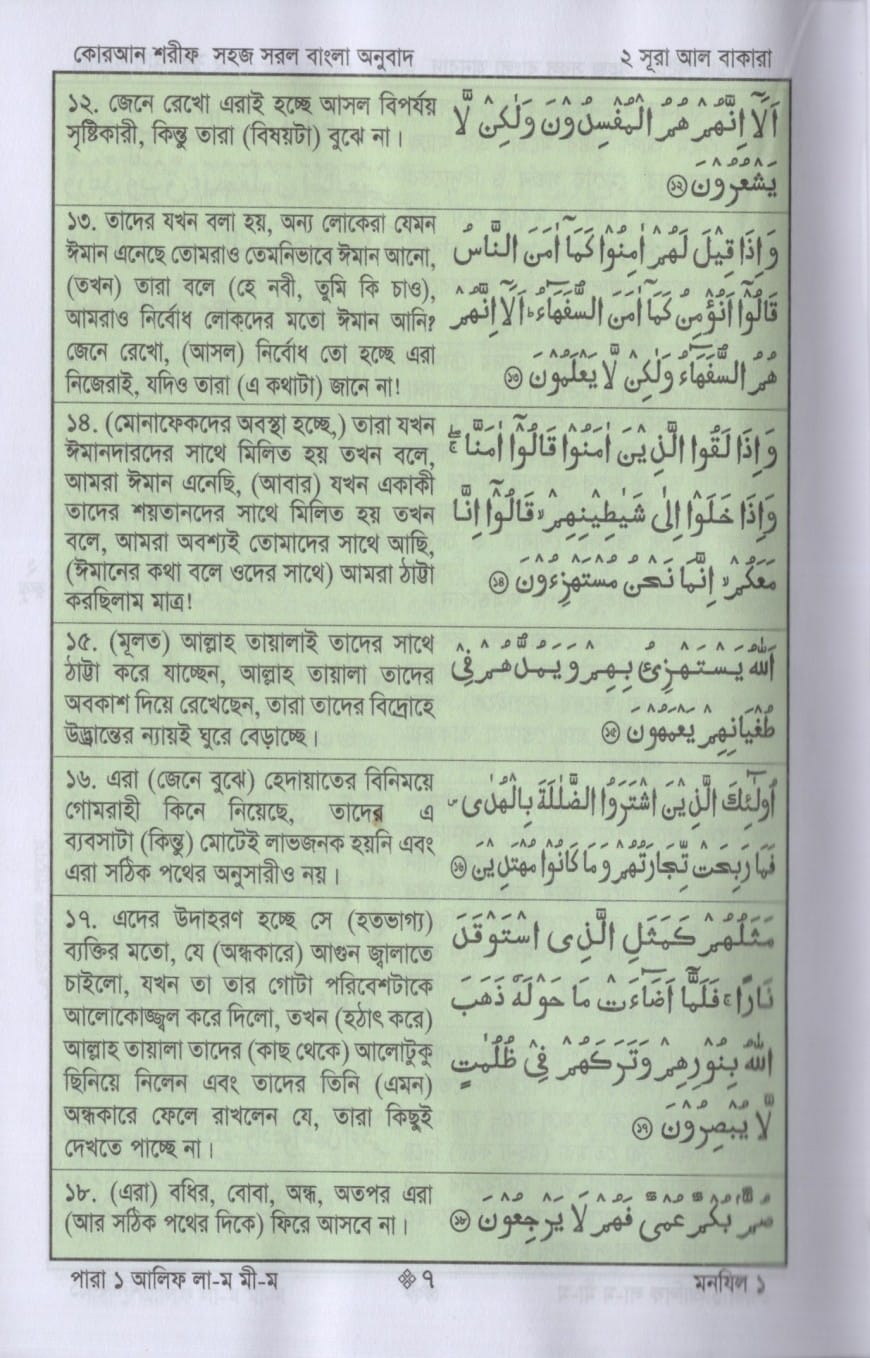 কোরআন শরীফ সহজ সরল বাংলা অনুবাদ
২ সূরা আল বাকারা
১২. জেনে রেখো এরাই হচ্ছে আসল বিপর্যয়
সৃষ্টিকারী, কিন্তু তারা (বিষয়টা) বুঝে না।
اَلَآ اِنَّهُمْ هُمُ الْمُفْسِدُوْنَ وَلٰكِنْ لَّا
يَشْعُرُوْنَ ⑫
১৩. তাদের যখন বলা হয়, অন্য লোকেরা যেমন
ঈমান এনেছে তোমরাও তেমনিভাবে ঈমান আনো,
(তখন) তারা বলে (হে নবী, তুমি কি চাও),
আমরাও নির্বোধ লোকদের মতো ঈমান আনি?
জেনে রেখো, (আসল) নির্বোধ তো হচ্ছে এরা
নিজেরাই, যদিও তারা (এ কথাটা) জানে না!
وَاِذَا قِيْلَ لَهُمْ اٰمِنُوْا كَمَآ اٰمَنَ النَّاسُ
قَالُوْٓا اَنُؤْمِنُ كَمَآ اٰمَنَ السُّفَهَآءُ ؕ اَلَآ اِنَّهُمْ
هُمُ السُّفَهَآءُ وَلٰكِنْ لَّا يَعْلَمُوْنَ ⑬
১৪. (মোনাফেকদের অবস্থা হচ্ছে,) তারা যখন
ঈমানদারদের সাথে মিলিত হয় তখন বলে,
আমরা ঈমান এনেছি, (আবার) যখন একাকী
তাদের শয়তানদের সাথে মিলিত হয় তখন
বলে, আমরা অবশ্যই তোমাদের সাথে আছি,
(ঈমানের কথা বলে ওদের সাথে) আমরা ঠাট্টা
করছিলাম মাত্র!
وَاِذَا لَقُوا الَّذِيْنَ اٰمَنُوْا قَالُوْٓا اٰمَنَّا ۚۖ
وَاِذَا خَلَوْا اِلٰى شَيٰطِيْنِهِمْ ۙ قَالُوْٓا اِنَّا
مَعَكُمْ ۙ اِنَّمَا نَحْنُ مُسْتَهْزِءُوْنَ ⑭
১৫. (মূলত) আল্লাহ তায়ালাই তাদের সাথে
ঠাট্টা করে যাচ্ছেন, আল্লাহ তায়ালা তাদের
অবকাশ দিয়ে রেখেছেন, তারা তাদের বিদ্রোহে
উদ্ভ্রান্তের ন্যায়ই ঘুরে বেড়াচ্ছে।
اَللّٰهُ يَسْتَهْزِئُ بِهِمْ وَيَمُدُّهُمْ فِيْ
طُغْيَانِهِمْ يَعْمَهُوْنَ ⑮
১৬. এরা (জেনে বুঝে) হেদায়াতের বিনিময়ে
গোমরাহী কিনে নিয়েছে, তাদের এ
ব্যবসাটা (কিন্তু) মোটেই লাভজনক হয়নি এবং
এরা সঠিক পথের অনুসারীও নয়।
اُولٰٓئِكَ الَّذِيْنَ اشْتَرَوُا الضَّلٰلَةَ بِالْهُدٰى ۪
فَمَا رَبِحَتْ تِّجَارَتُهُمْ وَمَا كَانُوْا مُهْتَدِيْنَ ⑯
১৭. এদের উদাহরণ হচ্ছে সে (হতভাগ্য)
ব্যক্তির মতো, যে (অন্ধকারে) আগুন জ্বালাতে
চাইলো, যখন তা তার গোটা পরিবেশটাকে
আলোকোজ্জ্বল করে দিলো, তখন (হঠাৎ করে)
আল্লাহ তায়ালা তাদের (কাছ থেকে) আলোটুকু
ছিনিয়ে নিলেন এবং তাদের তিনি (এমন)
অন্ধকারে ফেলে রাখলেন যে, তারা কিছুই
দেখতে পাচ্ছে না।
مَثَلُهُمْ كَمَثَلِ الَّذِى اسْتَوْقَدَ
نَارًا ۚ فَلَمَّآ اَضَآءَتْ مَا حَوْلَهٗ ذَهَبَ
اللّٰهُ بِنُوْرِهِمْ وَتَرَكَهُمْ فِيْ ظُلُمٰتٍ
لَّا يُبْصِرُوْنَ ⑰
১৮. (এরা) বধির, বোবা, অন্ধ, অতপর এরা
(আর সঠিক পথের দিকে) ফিরে আসবে না।
صُمٌّۢ بُكْمٌ عُمْىٌ فَهُمْ لَا يَرْجِعُوْنَ ⑱
পারা ১ আলিফ লা-ম মী-ম
৭
মনযিল ১